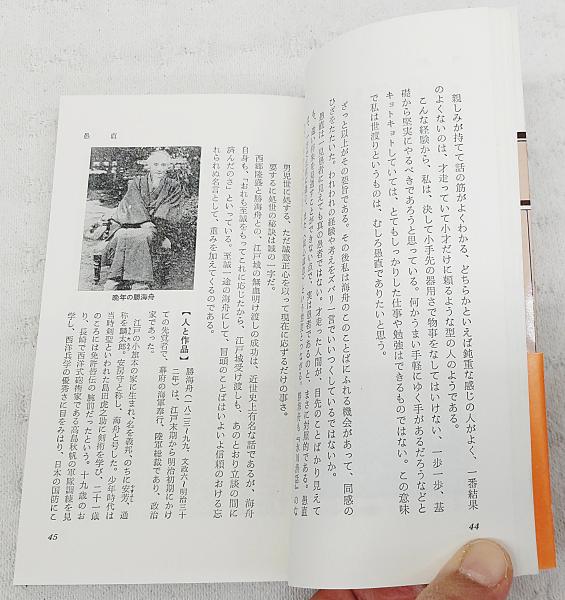 親しみが持てて話の筋がよくわかる、どちらかといえば鈍重な感じの人がよく、一番結果
のよくないのは、才走っていて小才だけに頼るような型の人のようである。
こんな経験から、私は、決して小手先の器用さで物事をなしてはいけない、一歩一歩、基
礎から堅実にやるべきであろうと思っている。何かうまい手軽にゆく手があるだろうなどと
キョトキョトしていては、とてもしっかりした仕事や勉強はできるものではない。この意味
で私は世渡りというものは、むしろ愚直でありたいと思う。
ざっと以上がその要旨である。その後私は海舟のこのことばにふれる機会があって、同感の
ひざをたたいた。われわれの経験や考えをズバリ一言でいいつくしているではないか。
愚直は一見愚者に見えても真の愚者ではない。才走った人間が、目先のことばかり見えて
44
愚直
男児世に処する、ただ誠意正心を以って現在に応ずるだけの事さ。
要するに処世の秘訣は誠の一字だ。
西郷隆盛と勝海舟との、江戸城の無血明け渡しの成功は、近世史上有名な話であるが、海舟
自身も、「おれも至誠をもってこれに応じたから、江戸城受け渡しも、あのとおり立談の間に
済んだのさ」といっている。至誠一途の海舟にして、冒頭のことばはいよいよ信頼のおける忘
れられぬ名言として、重みを加えてくるのである。
晩年の勝海舟
【人と作品】 勝海舟(一八二三/一八九九、文政六/明治三十
二年)は、江戸末期から明治初期にかけ
ての先覚者で、幕府の海軍奉行、陸軍総裁であり、政治
家であった。
江戸の小旗本の家に生まれ、名を義邦、のちに安芳、通
称を麟太郎。安房守と称し、海舟と号した。少年時代は
当時剣聖といわれた島田虎之助に剣術を学び、二十一歳
のころには免許皆伝の腕前だったという。十九歳のお
り、長崎で西洋式砲術家である高島秋帆の軍隊調練を見
学し、西洋兵学の優秀さに目をみはり、日本の国防にこ
45